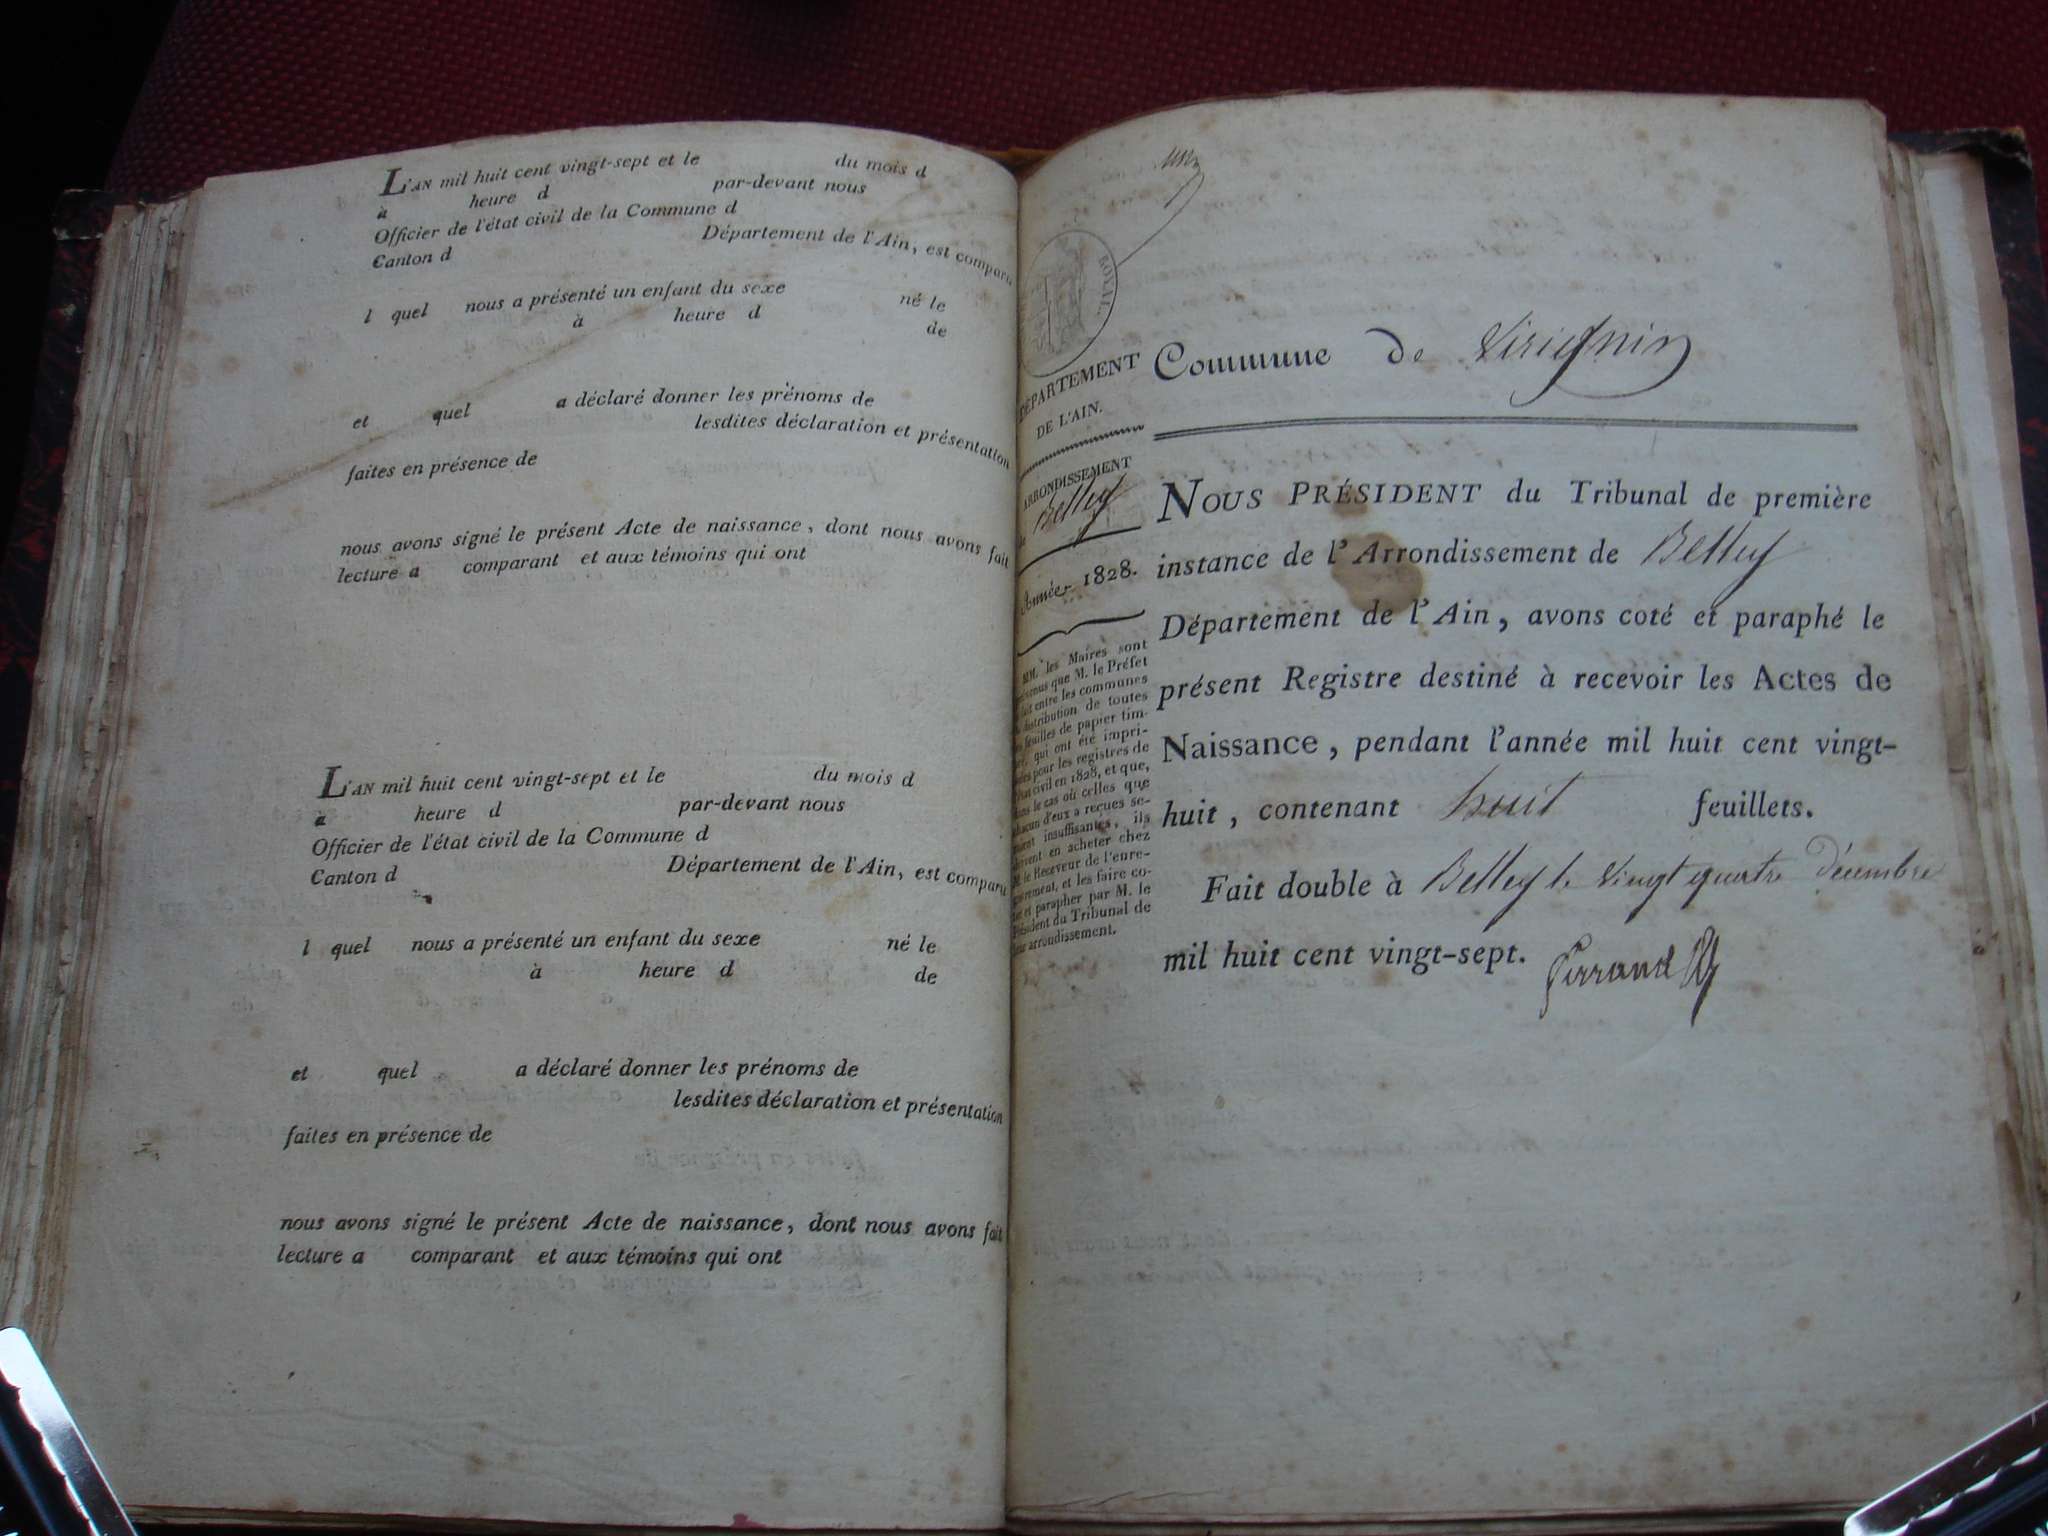 L'AN mil huit cent vingt-sept et le du mois d
à heure d par-devant nous
Officier de l'état civil de la Commune d
Canton d Département de l'Ain, est comparu
l quel nous a présenté un enfant du sexe né le
à heure d de
et quel a déclaré donner les prénoms de
lesdites déclaration et présentation
faites en présence de
nous avons signé le présent Acte de naissance, dont nous avons fait
lecture a comparant et aux témoins qui ont
L'AN mil huit cent vingt-sept et le du mois d
à heure d par-devant nous
Officier de l'état civil de la Commune d
Canton d Département de l'Ain, est comparu
l quel nous a présenté un enfant du sexe né le
à heure d de
et quel a déclaré donner les prénoms de
lesdites déclaration et présentation
faites en présence de
nous avons signé le présent Acte de naissance, dont nous avons fait
lecture a comparant et aux témoins qui ont
ROYAL.
DÉPARTEMENT
DE L'AIN.
ARRONDISSEMENT
de Belley
Année 1828.
MM. les Maires sont
prévenus que M. le Préfet
fait entre les communes
la distribution de toutes
les feuilles de papier tim-
bré, qui ont été impri-
mées pour les registres de
l'état civil en 1828, et que,
dans le cas où celles que
chacun d'eux a reçues se-
raient insuffisantes, ils
doivent en acheter chez
M. le Receveur de l'enre-
gistrement, et les faire co-
ter et parapher par M. le
Président du Tribunal de
leur arrondissement.
Commune de Virignin
NOUS PRÉSIDENT du Tribunal de première
instance de l'Arrondissement de Belley
Département de l'Ain, avons coté et paraphé le
présent Registre destiné à recevoir les Actes de
Naissance, pendant l'année mil huit cent vingt-
huit, contenant huit feuillets.
Fait double à Belley le vingt quatre décembre
mil huit cent vingt-sept.